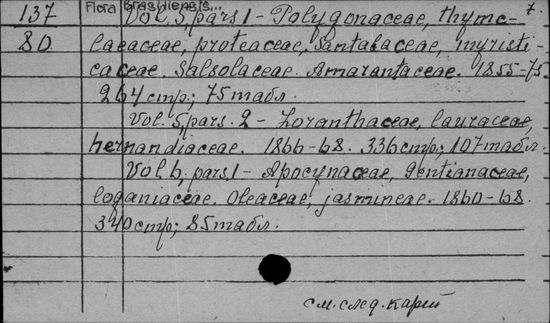 137 Flora brasiliensis... 7.
80 Vol. 5, pars 1 - Polygonaceae, thyme-
laeaceae, proteaceae, santalaceae, myristi-
caceae. Salsolaceae. Amarantaceae. 1855-75
264 стр; 75 табл.
Vol. 5, pars. 2 - Loranthaceae, lauraceae,
hernandiaceae. 1866-68. 336 стр; 107 табл.
Vol. 6, pars 1 - Apocynaceae, gentianaceae,
loganiaceae. Oleaceae, jasmineae. 1860-68.
340 стр; 85 табл.
см. след. карт